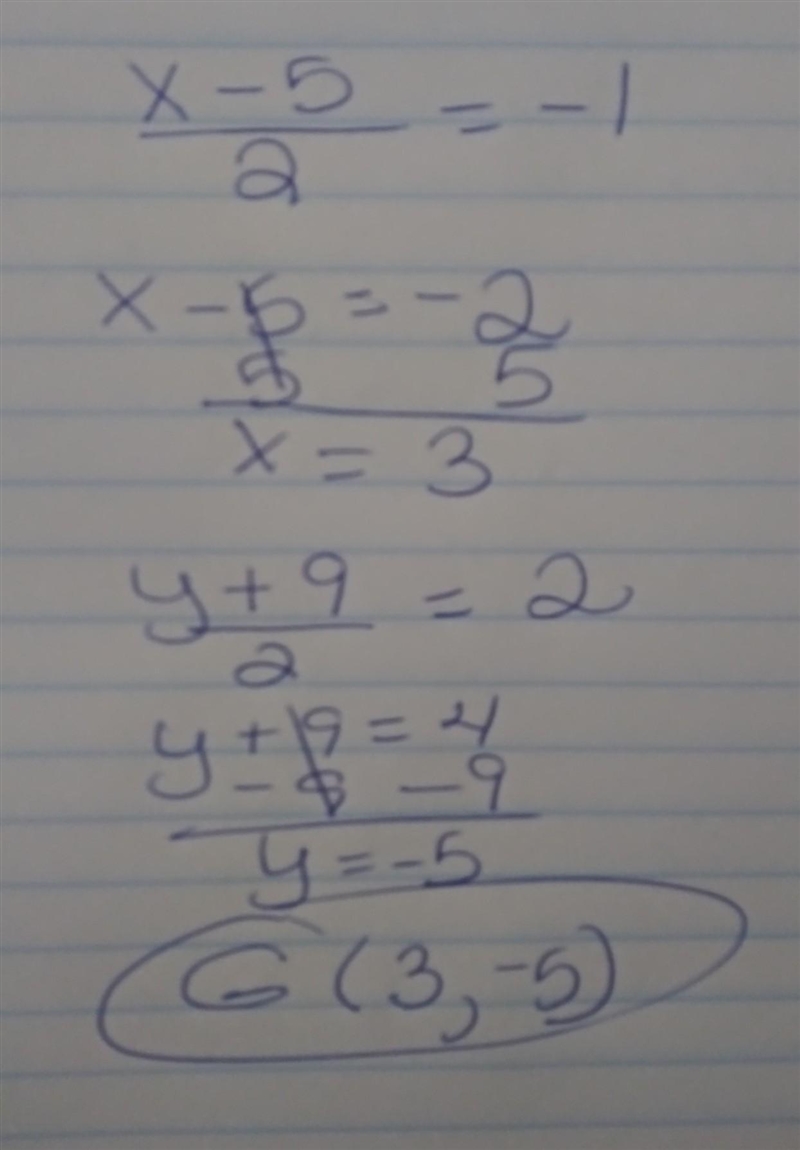 x - 5
2
= -1
x - 5 = -2
5 5
x = 3
y + 9
2
= 2
y + 9 = 4
- 9 - 9
y = -5
G (3, -5)